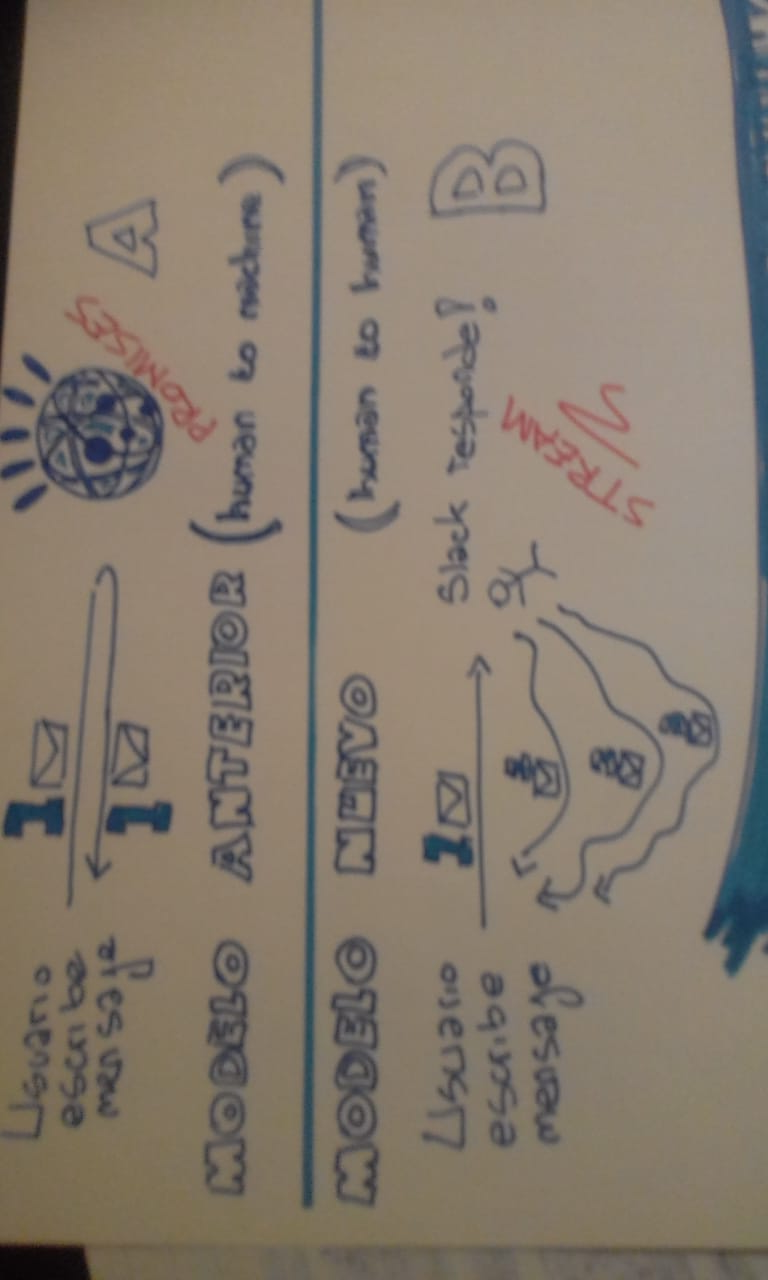 Usuario
escribe
mensaje
1
1
PROMISES
A
MODELO ANTERIOR (human to machine)
MODELO NUEVO (human to human)
Usuario
escribe
mensaje
1
Slack responde?
STREAM
B